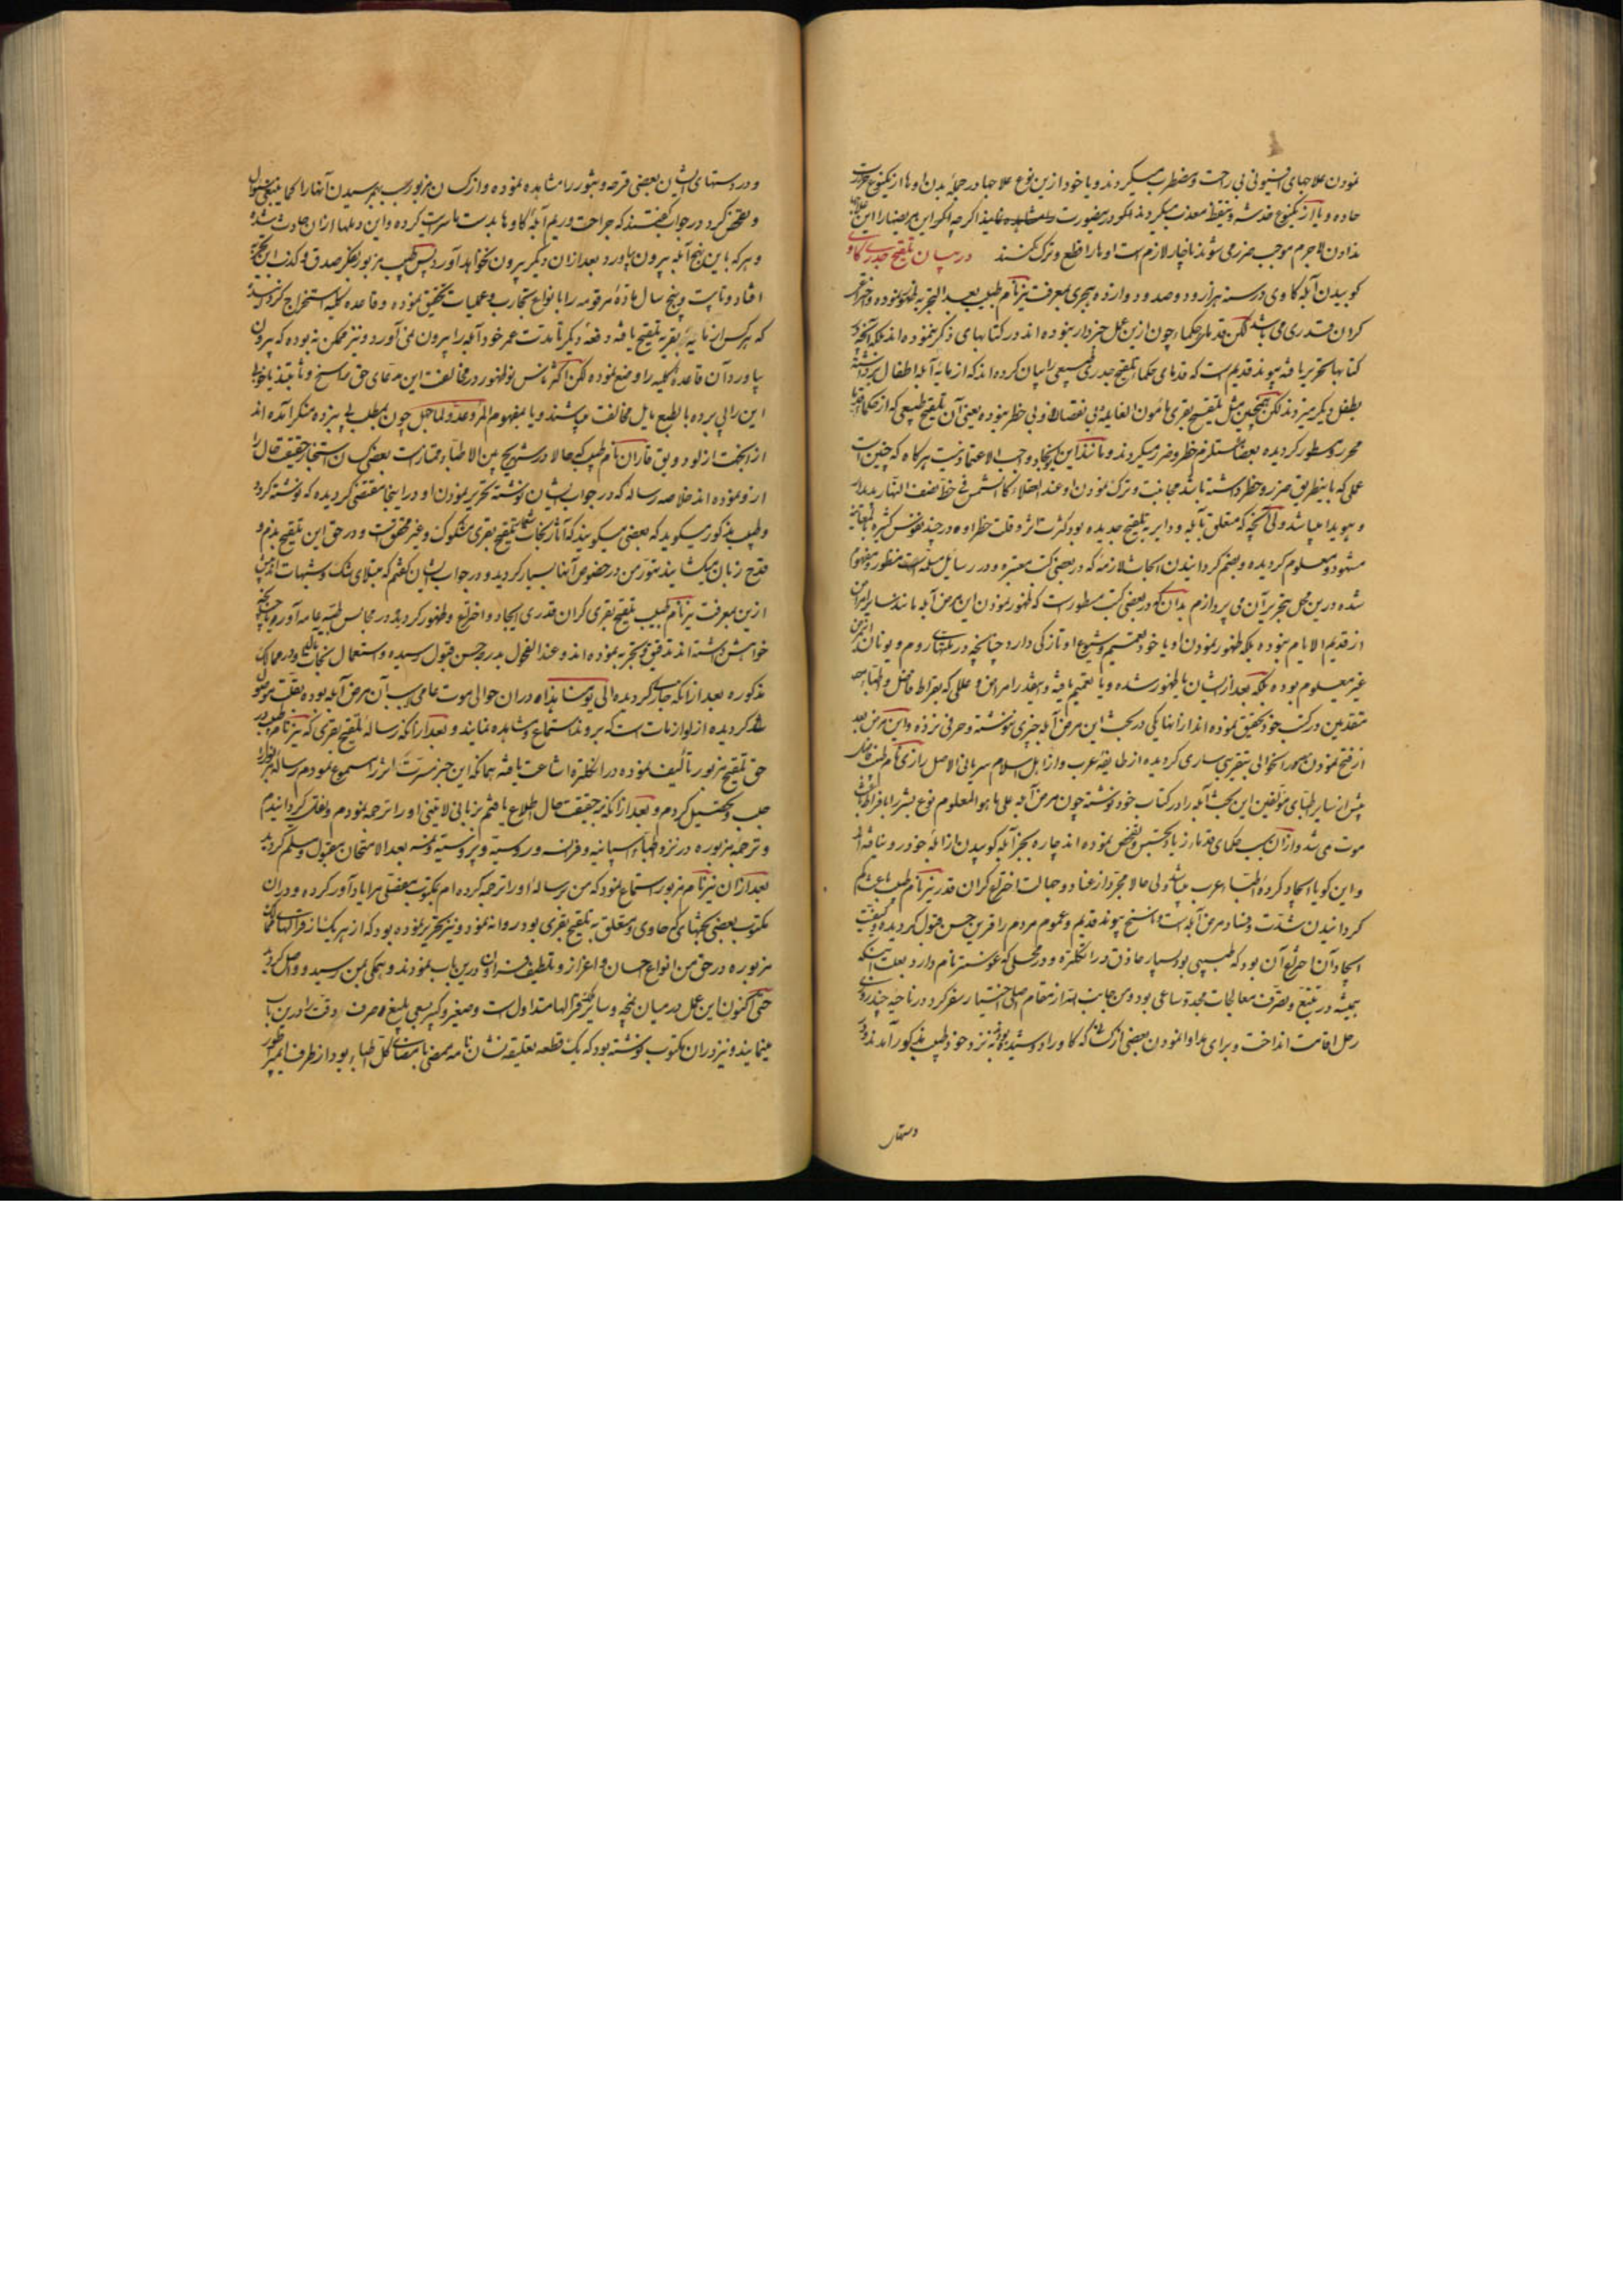 نمودن علاجهای افیونی بی راحت و مضطرب میکردند و یا خود ازین نوع علاجها در جملهٔ بدن او ها از یکنوع حرارت
حاده و یا از یکنوع خدشه و تیقظ معذب میکردند اگر درینصورت مشاهده نمایند اگرچه اگر این مریضها را این علاجها
ندادن لاجرم موجب ضرر می شوند ناچار لازم است او ها را قطع و ترک کنند در بیان تلقیح جدری گاوی
کوبیدن آبلهٔ گاوی در سنه هزار و دو صد و دوازده هجری بمعرفت ینر نام طبیب بعد التجربه ظهور نموده و اختراع
کردان قدری می باشد لکن قدمای حکما چون ازین عمل خبردار نبوده اند در کتابهای ذکر ننموده اند بلکه آنچه در
کتابها تحریر یافته پیوند قدیم است که قدمای حکما تلقیح جدری طبیعی را بیان کرده اند که از مایهٔ آبله اطفال برداشته
بطفل دیگر میزدند لکن همچنین مثل تلقیح بقری مأمون الغایله و بی نقصان و بی خطر نبوده یعنی آن تلقیح طبیعی که از حکمای قدما
محرر و مسطور کردیده بعضا مستلزم خطر و ضرر میکردند و مانند این ایجاد واجب الاعتماد نیست هر کاه که چنین است
عملی که باینطریق ضرر و خطر داشته باشد مجانبت و ترک نمودن او عند العقلاء کالشمس فی خط نصف النهار پدیدار
و هویدا میباشد ولی آنچه که متعلق بآبله و دایر به تلقیح جدیده بود کثرت اثر و قلت خطر او در چند نفوس کثیره بمعاینه
مشهود و معلوم کردیده و بضم کردانیدن ابحاث لازمه که در بعضی کتب معتبره و در رسایل مسلمه است منظور و مفهوم
شده درین محل بتحریر آن می پردازم بدان که در بعضی کتب مسطور است که ظهور نمودن این مرض آبله مانند سایر امراض
از قدیم الایام نبوده بلکه ظهور نمودن او یا خود تعمیم و شیوع او تازکی دارد چنانچه در ملکهای روم و یونان این مرض
غیر معلوم بوده بلکه بعد ازیشان یا ظهور شده و یا تعمیم یافته و بهقدر امراض و عللی که بقراط فاضل و اطباء
متقدمین در کتب خود تحقیق نموده اند از انها یکی در بحث این مرض آبله چیزی ننوشته و حرفی نزده و این مرض بعد
از فتح نمودن مصر استخوالی بتقریبی ساری کردیده از طایفهٔ عرب و از اهل اسلام سریانی الاصل رازی نام طبیب
پیش از سایر اطبای مؤلفین این بحث آبله را در کتاب خود نوشته چون مرض آبله علی ما هو المعلوم نوع بشر را بافراط باعث
موت می شد و ازان سبب حکمای قدما هر زیاد تجسس و تفحص نموده اند چاره بجز آبله کوبیدن ازالهٔ خود رو نیافته اند
و این کویا ایجاد کردهٔ اطباء عرب میباشد ولی حالا مجرد از عناد و جهالت اختراع کران قدر ینر نام طبیب باعث کم
کردانیدن شدت و فساد مرض آبله است و ناسخ پیوند قدیم و عموم مردم را قرین حسن قبول کردیده و کیفیت
ایجاد آن اختراع آن بود که طبیبی بود بسیار حاذق در انکلتره و در محلی که غلوسستر نام دارد بعلت اینکه
همیشه در تتبع و تصرف معالجات مجده ساعی بود و من جانب الله از مقام اصلی اختیار سفر کرد در ناحیه چند روزی
رحل اقامت انداخت و برای مداوا نمودن بعضی از کسانی که گاو را دوشیده بودند نزد خود طبیب مذکور آمدند و در
دستهای
و در دستهای ایشان بعضی قرحه و بثور را مشاهده نموده و از کسان مزبور سبب بهم رسیدن آنها را کما ینبغی سؤال
و تفحص کرد در جواب گفتند که جراحت و ریم آبلهٔ گاوها بدست ما سرایت کرده و این دملها ازان حادث شده
و هر که باین نهج آبله بیرون بیاورد بعد ازان دیگر بیرون نخواهد آورد پس طبیب مزبور بفکر صدق و کذب این تجربه
افتاد و تا بیست و پنج سال مادهٔ مرقومه را بانواع تجارب و عملیات تحقیق نموده و قاعده کلیه استخراج کردانید
که هر کس از مایهٔ بقریه تلقیح یافته دفعهٔ دیگر تا مدت عمر خود آبله را بیرون نمی آورد و نیز ممکن نبوده که بیرون
بیاورد آن قاعدهٔ کلیه را وضع نموده لکن اکثر ناس نو ظهور در مخالفت این مدعای حق راسخ و ثابتند یا خود
این را پی برده بالطبع مایل مخالفت میباشند و یا بمفهوم المرء عدو لما جهل چون بمطلب پی نبرده منکر آمده اند
از انجهت از لودویق قاران نام طبیب که حالا در تشریح بین الاطباء ممتاز است بعضی کسان استخبار حقیقت حال را
ازو نموده اند خلاصه رساله که در جواب ایشان نوشته تحریر نمودن او در اینجا مقتضی کردیده که نوشته کردد
و طبیب مذکور میکوید که بعضی میکویند که آثار نجات تلقیح بقری مشکوک و غیر محقق است و در حق این تلقیح بذم و
قدح زبان میکشایند بتور من در خصوص آنها بسیار کردید و در جواب ایشان کفتم که مبتلای شک و شبهات اند پیش
ازین بمعرفت ینر نام طبیب تلقیح بقری کران قدری ایجاد و اختراع و ظهور کردید و در مجالس طبیه عامه آورده چنانچه
خواهش داشته اند تدقیق و تجربه نموده اند و عند الفحول بدرجهٔ حسن قبول رسیده و استعمال نجات مآلش در ممالک
مذکوره بعد از انکه جاری کردیده الی یومنا هذا دران حوالی موت عامی بسبب آن مرض آبله بوده بقلت مبدل
شد کردیده از لوازمات است که بروند استماع و مشاهده نمایند و بعد از انکه رسالهٔ تلقیح بقری که ینر نام طبیب در
حق تلقیح مزبور تألیف نموده در انکلتره اشاعت یافته همانکه این خبر مسرت اثر را مسموع نمودم رسالهٔ مزبوره را
جلب و تحصیل کردم و بعد از انکه بر حقیقت حال اطلاع یافتم بزبانی لاتینی او را ترجمه نمودم و نقل کردانیدم
و ترجمهٔ مزبوره در نزد اطباء اسپانیه و فرانسه و روسیه و پروسیه و نمسه بعد الامتحان مقبول و مسلم کردید
بعد ازان ینر نام مزبور استماع نمود که من رسالهٔ او را ترجمه کرده ام مکتوب مفصلی مرا یاد آور کرده و دران
مکتوب بعضی بحثهای که حاوی و متعلق به تلقیح بقری بود روانه نمود و نیز تحریر نموده بود که از هر یک از قرالهای ممالک
مزبوره در حق من انواع احسان و اعزاز و تلطیف فراوان درین باب نمودند و همکی بمن رسید و واصل کردید
حتی اکنون این عمل در میان نمچه و سایر قرالها متداول است و صغیر و کبیر سعی بلیغ و صرف دقت را درین باب
مینمایند و نیز دران مکتوب نوشته بود که یک قطعه تعلیقه نشان نامه ممضی بامضای کل اطباء بود از طرف ایمپراطور